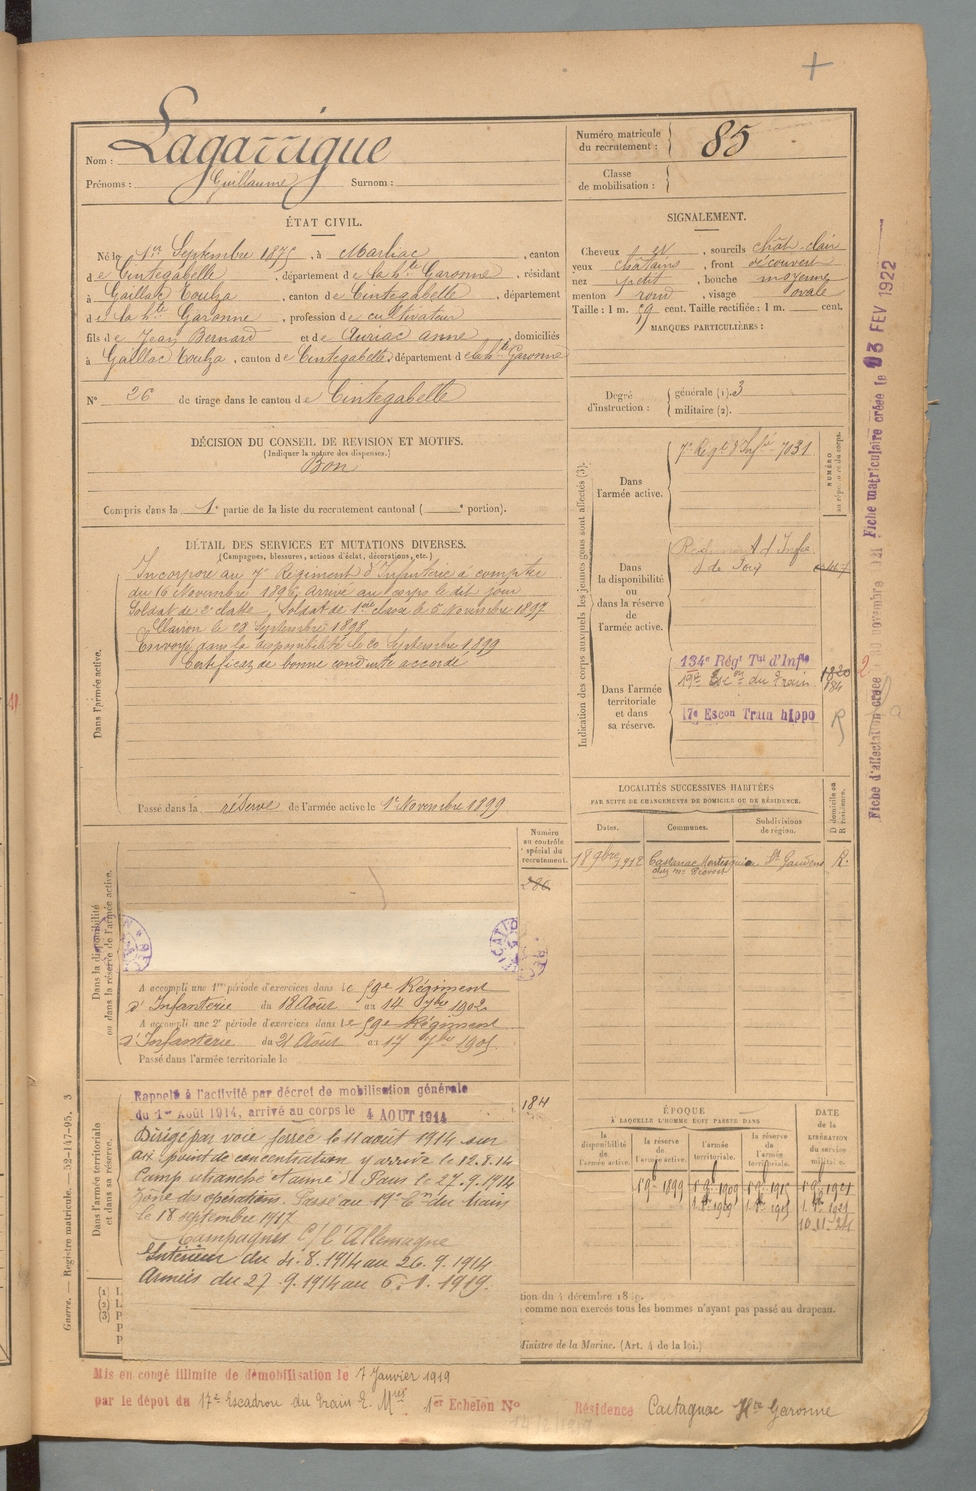 Nom : Lagarrigue
Prénoms : Guillaume Surnom :
Numéro matricule du recrutement : 85
Classe de mobilisation :
ÉTAT CIVIL.
Né le 1er Septembre 1875, à Marliac, canton
de Cintegabelle, département de la hte Garonne, résidant
à Gaillac Toulza, canton de Cintegabelle, département
de la hte Garonne, profession de cultivateur
fils de Jean Bernard et de Auriac anne, domiciliés
à Gaillac Toulza, canton de Cintegabelle, département de la hte Garonne
N° 26 de tirage dans le canton de Cintegabelle
DÉCISION DU CONSEIL DE REVISION ET MOTIFS.
(Indiquer la nature des dispenses.)
Bon
Compris dans la 1e partie de la liste du recrutement cantonal ( e portion).
SIGNALEMENT.
Cheveux et, sourcils chât. clair
yeux châtains, front découvert
nez petit, bouche moyenne
menton rond, visage ovale
Taille : 1 m. 59 cent. Taille rectifiée : 1 m. cent.
MARQUES PARTICULIÈRES :
Degré d'instruction : générale (1). 3
militaire (2).
DÉTAIL DES SERVICES ET MUTATIONS DIVERSES.
(Campagnes, blessures, actions d'éclat, décorations, etc.)
Dans l'armée active.
Incorporé au 7e Régiment d'Infanterie à compter
du 16 Novembre 1896, arrivé au corps le dit jour
Soldat de 2e classe, Soldat de 1ère classe le 5 Novembre 1897
Clairon le 29 Septembre 1898
Envoyé dans la disponibilité le 20 Septembre 1899
Certificat de bonne conduite accordé
Passé dans la réserve de l'armée active le 1er Novembre 1899
Indication des corps auxquels les jeunes gens sont affectés (3).
NUMÉRO au répertoire du corps.
Dans l'armée active.
7e Régt d'Infie 7031
Dans la disponibilité ou dans la réserve de l'armée active.
Régiment d'Infie
de
Dans l'armée territoriale et dans sa réserve.
134e Régt Tal d'Infie 1820
19e Escon du Train 184
17e Escon Train hippo
R
LOCALITÉS SUCCESSIVES HABITÉES
PAR SUITE DE CHANGEMENTS DE DOMICILE OU DE RÉSIDENCE.
Dates. Communes. Subdivisions de région. D domicile ou R résidence.
18 9bre 1912 Castagnac Montesquieu St Gaudens R.
chez Mr Prevost
Numéro au contrôle spécial du recrutement.
286
Dans la disponibilité ou dans la réserve de l'armée active.
A accompli une 1re période d'exercices dans le 59e Régiment
d'Infanterie du 18 Août au 14 7bre 1902
A accompli une 2e période d'exercices dans le 59e Régiment
d'Infanterie du 21 Août au 17 7bre 1905
Passé dans l'armée territoriale le
184
Dans l'armée territoriale et dans sa réserve.
Rappelé à l'activité par décret de mobilisation générale
du 1er Août 1914, arrivé au corps le 4 AOUT 1914
Dirigé par voie ferrée le 11 août 1914 sur
un point de concentration y arrive le 12.8.14
Camp retranché et armé de Paris le 27.9.1914
Zône des opérations. Passé au 19e En du train
le 18 septembre 1917
Campagnes C/ l'Allemagne
Intérieur du 4.8.1914 au 26.9.1914
Armées du 27.9.1914 au 6.1.1919.
ÉPOQUE
À LAQUELLE L'HOMME DOIT PASSER DANS
la disponibilité de l'armée active. la réserve de l'armée active. l'armée territoriale. la réserve de l'armée territoriale.
DATE de la LIBÉRATION du service militaire.
1er 9b 1899 1er 9b 1909 1er 9b 1915 1er 9b 1921
1er 8b 1909 1er 8b 1915 1er 8b 1921
10.11.21
tion du 4 décembre 18
comme non exercés tous les hommes n'ayant pas passé au drapeau.
Ministre de la Marine. (Art. 4 de la loi.)
Guerre. — Registre matricule. — 52-147-95. 3
Mis en congé illimité de démobilisation le 7 Janvier 1919
par le dépot du 17e Escadron du Train E. Mres 1er Echelon N°
Résidence Castagnac Hte Garonne
Fiche d'affectation créée le 30 novembre 1921 Fiche matriculaire créée le 03 FEV 1922